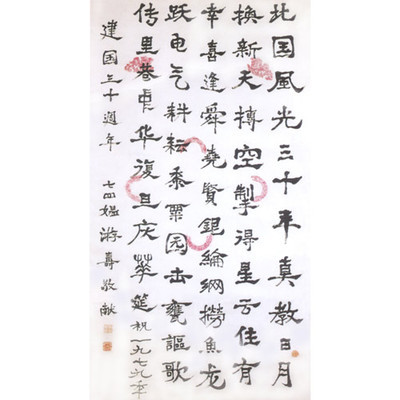 北国風光三十年真教日月
換新天搏空掣得星云住有
幸喜逢舜堯賢鉅綸網撈魚龙
跃电气耕耘黍粟园击甕謳歌
传里巷 华復旦庆華筵祝一九七九年
建国三十週年 七四媪游壽敬献